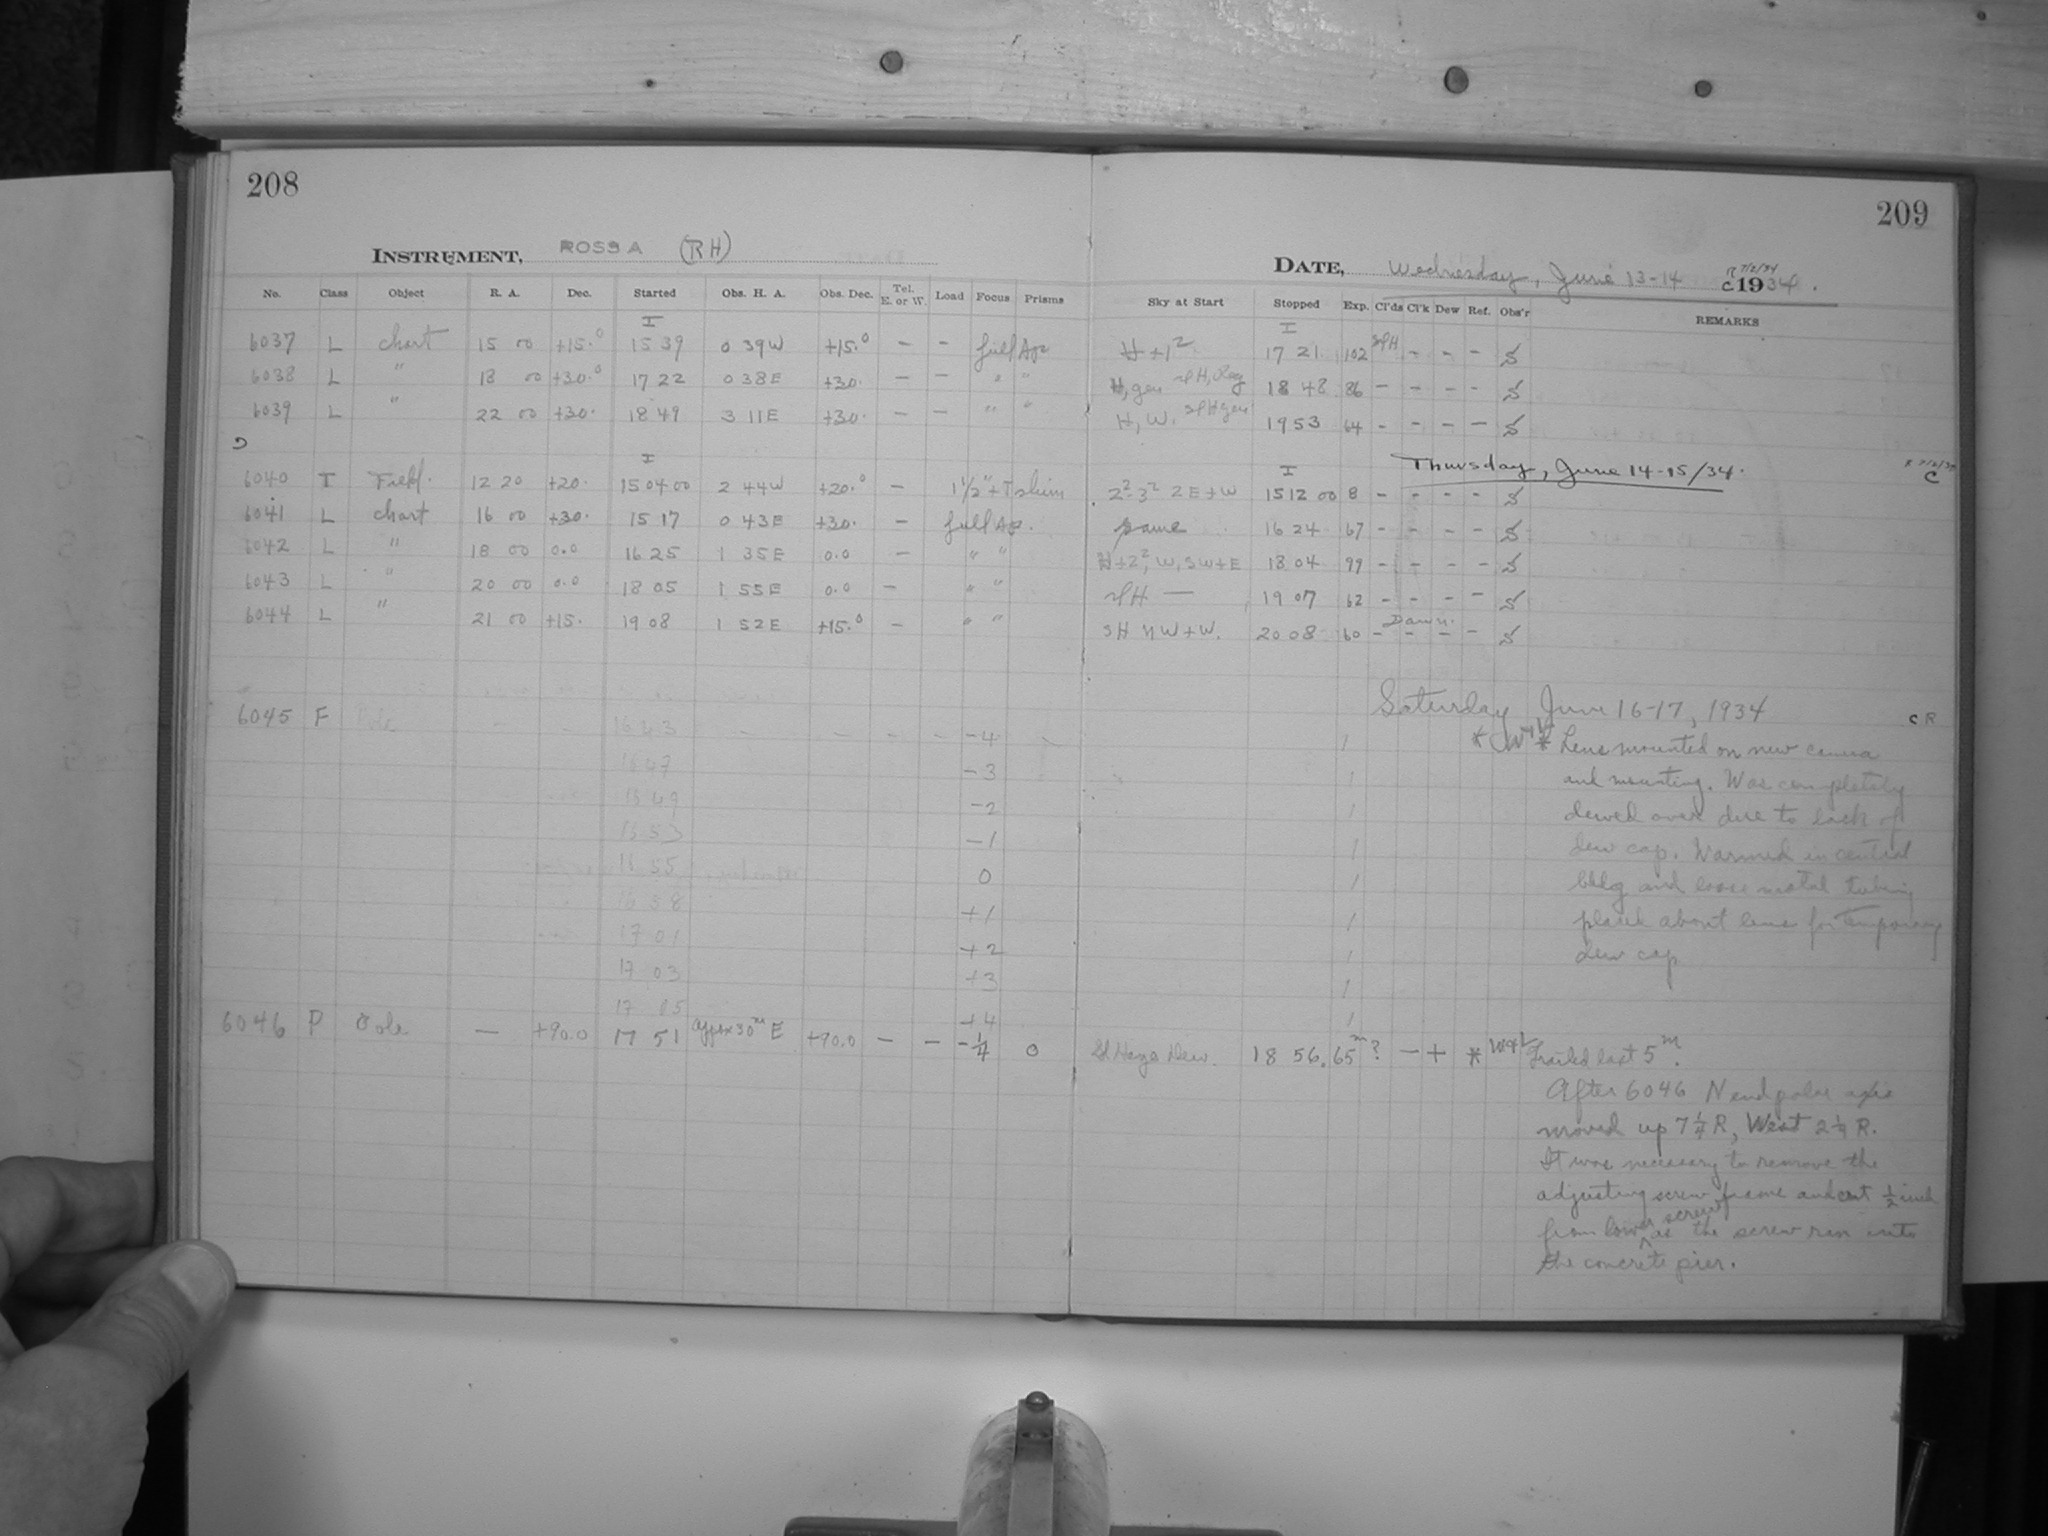 208
INSTRUMENT, ROSS A (RH)
No. Class Object R. A. Dec. Started Obs. H. A. Obs. Dec. Tel. E. or W. Load Focus Prisms
I
6037 L chart 15 00 +15.° 15 39 0 39W +15.° – – full Ape
6038 L " 18 00 +30.° 17 22 0 38E +30. – – " "
6039 L " 22 00 +30. 18 49 3 11E +30. – – " "
I
6040 T Field. 12 20 +20. 15 04 00 2 44W +20.° – 1½" + T shim
6041 L chart 16 00 +30. 15 17 0 43E +30. – full Ap.
6042 L " 18 00 0.0 16 25 1 35E 0.0 – " "
6043 L " 20 00 0.0 18 05 1 55E 0.0 – " "
6044 L " 21 00 +15. 19 08 1 52E +15.° – " "
6045 F Pole – – 16 43 – – – – -4 –
16 47 -3
16 49 -2
16 53 -1
16 55 0
16 58 +1
17 01 +2
17 03 +3
17 05 +4
6046 P Pole – +90.0 17 51 approx 30ᵐ E +90.0 – – -¼ 0
209
DATE, Wednesday, June 13-14 1934.
R 7/2/34
C
Sky at Start Stopped Exp. Cl'ds Cl'k Dew Ref. Obs'r REMARKS
I
H +1² 17 21 102 slH – – – S
H, gen slH, 18 48 86 – – – – S
H, W. slH gen 19 53 64 – – – – S
Thursday, June 14-15/34.
R 7/2/34
C
I
2²-3² 2 E+W 15 12 00 8 – – – – S
same 16 24 67 – – – – S
H+2², W, SW+E 18 04 99 – – – – S
slH — 19 07 62 – – – – S
Dawn.
SH NW+W. 20 08 60 – – – – S
Saturday June 16-17, 1934
C R
1 * * Lens mounted on new camera
1 and mounting. Was completely
1 dewed over due to lack of
1 dew cap. Warmed in central
1 bldg and loose metal tubing
1 placed about lens for temporary
1 dew cap
1
1
Sl Haze Dew. 18 56. 65ᵐ? – + * Trailed last 5ᵐ.
After 6046 N end polar axis
moved up 7¼ R, West 2¼ R.
It was necessary to remove the
adjusting screw frame and cut ½ inch
from lower screw as the screw ran into
the concrete pier.